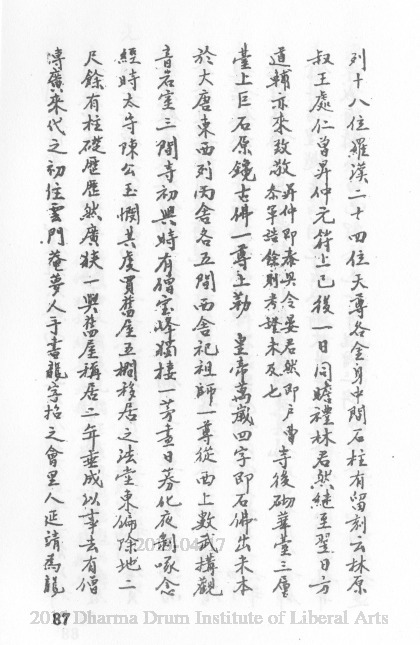 列十八位羅漢二十四位天尊各金身中間石柱有留刻云林原
叔王處仁曾昇仲元符上巳後一日同瞻禮林君然繼至翌日方
道輔亦來致敬昇仲即泰興令晏君然即戶曹參軍誥餘則考證未及七寺後砌華臺三層
臺上巨石原鐫古佛一尊上勒 皇帝萬歲四字即石佛出未本
於大唐東西列丙舍各五間西舍祀祖師一尊從西上數武搆觀
音岩室三間寺初興時有僧宝峰獨棲一茅晝日募化夜剩啄念
經時太守陳公玉憫其虔買舊屋五棡移居之法堂東偏除地二
尺餘有柱礎歷歷然廣狹一與舊屋稱居二年垂成以事去有僧
溥廣來代之初住雲門菴夢人手書龍字招之會里人延請為龍
87
2019-04-17
2019 Dharma Drum Institute of Liberal Arts